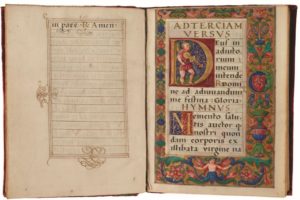 in pace. Amen.
AD TERCIAM
VERSUS
Deus in
adiuto
rium
meum
intende
Domi
ne ad adiuvandum
me festina: Gloria
HYMNUS
Memento salu
tis auctor q
nostri quon
dam corporis ex
illibata virgine na